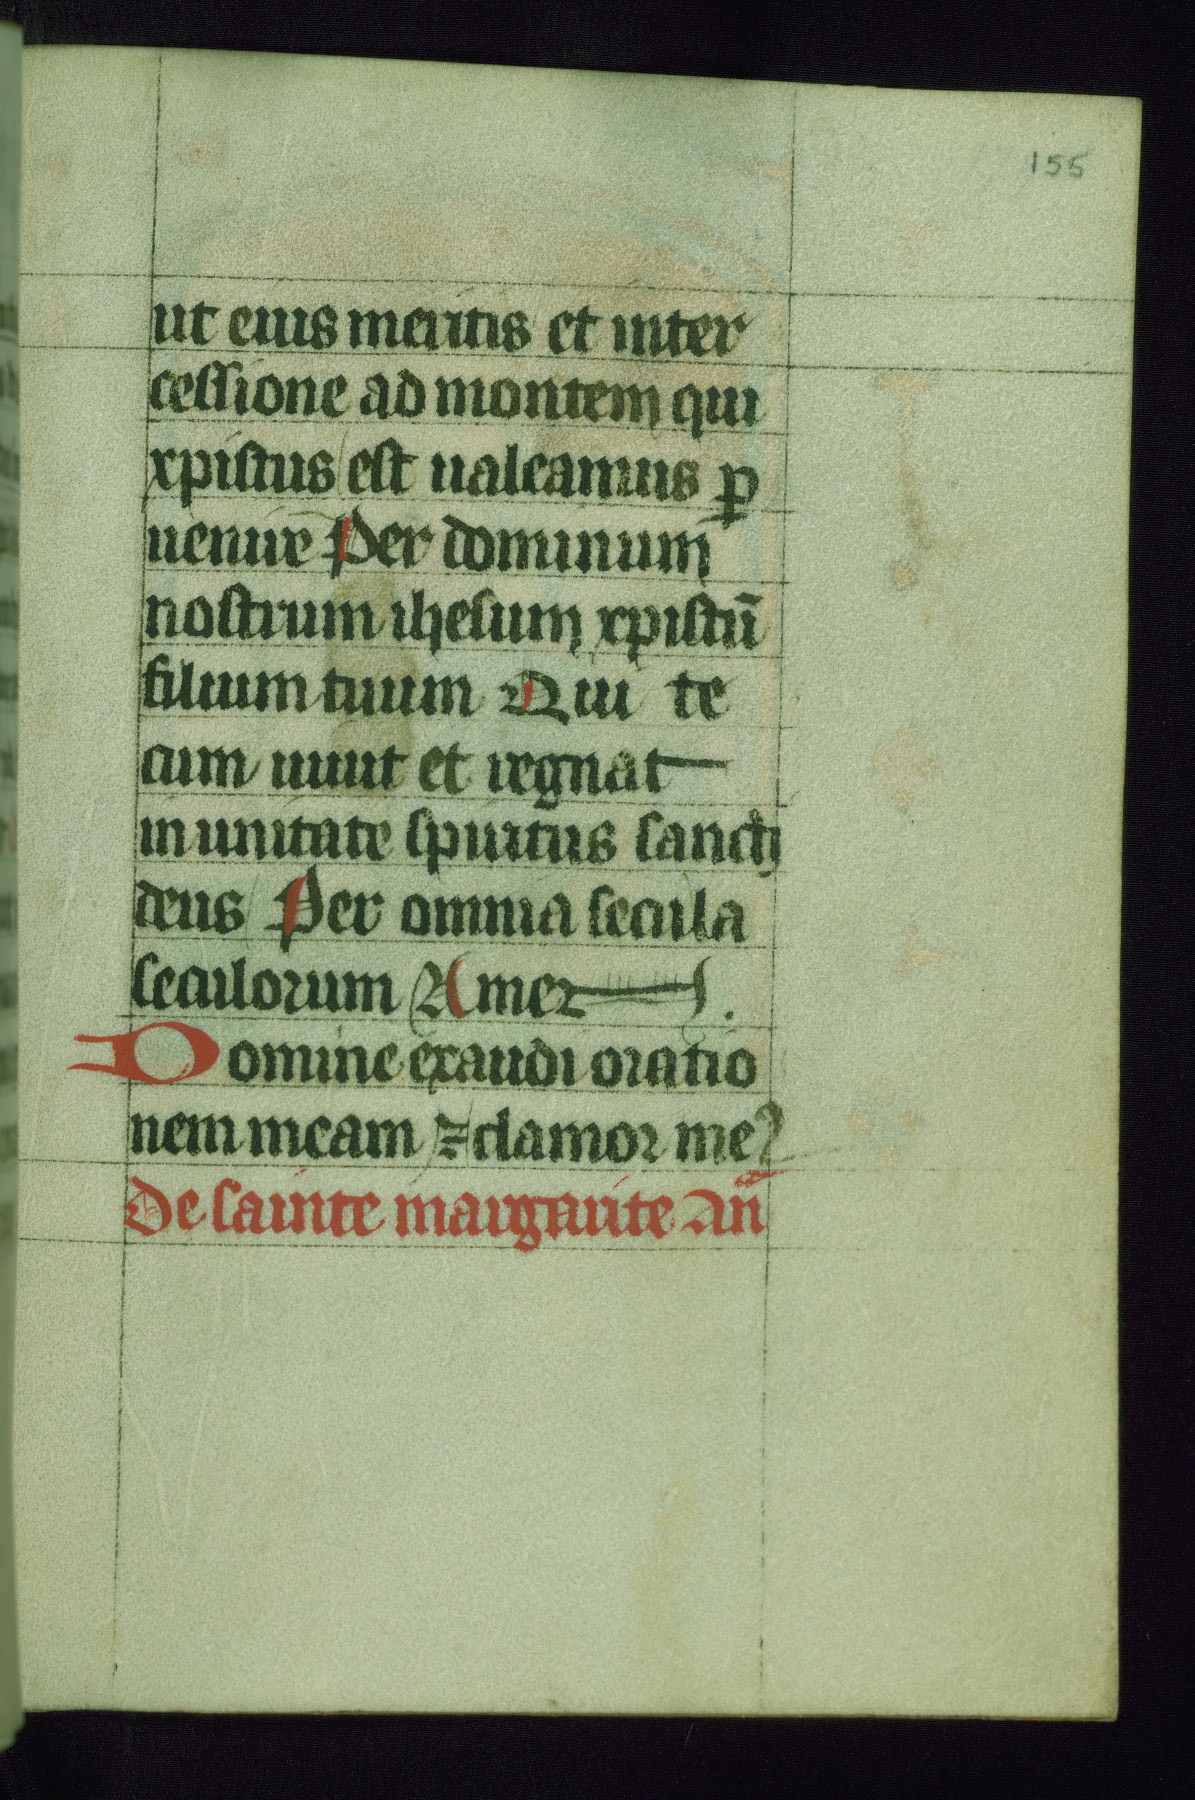 155
ut eius meritis et inter
cessione ad montem qui
xpistus est ualeamus ꝑ
uenire Per dominum
nostrum ihesum xpistū
filium tuum Qui te
cum uiuit et regnat
in unitate spiritus sancti
deus Per omnia secula
seculorum Amen.
Domine exaudi oratio
nem meam ⁊ clamor me
De sainte margarite Añ